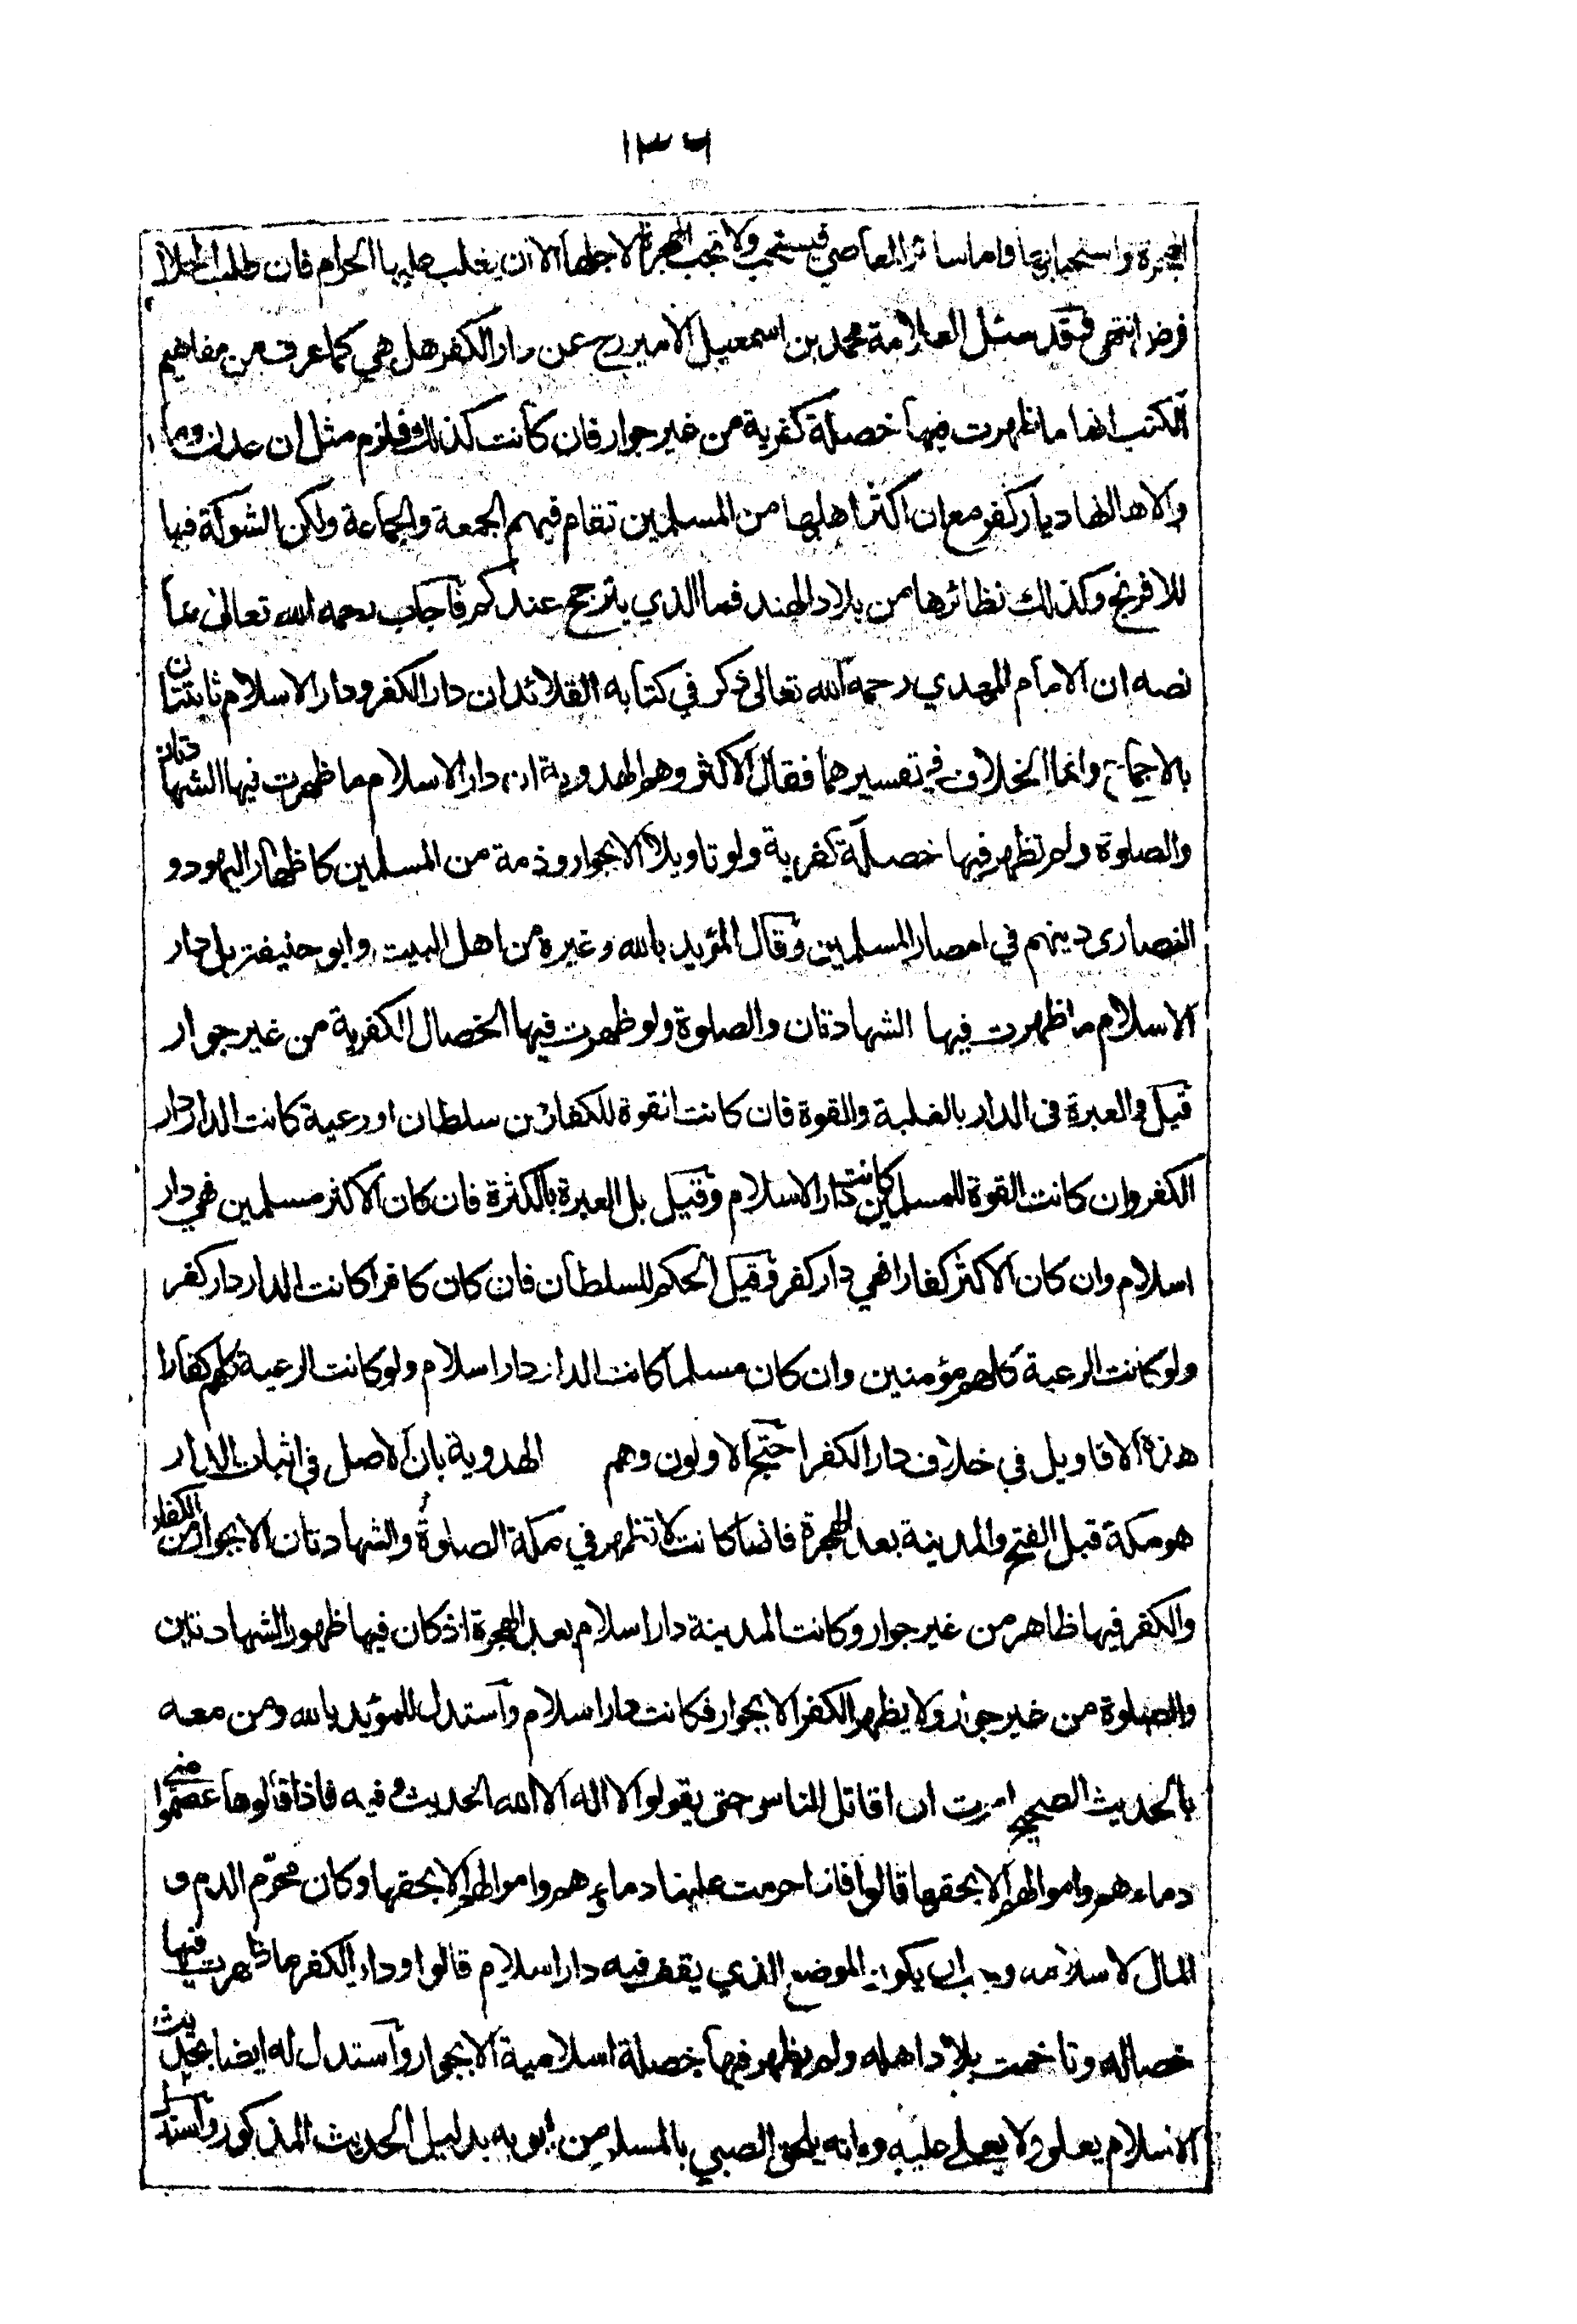 ١٣٦
الهجرة واستحبابها واما سائر المعاصي فيستحب ولا تجب الهجرة لاجلها الا ان يغلب عليها الحرام فان طلب الحلال
فرض انتهى فقد سئل العلامة محمد بن اسمعيل الامير رح عن دار الكفر هل هي كما عرف من مفاهيم
الكتب انها ما ظهرت فيها خصلة كفرية من غير جوار فان كانت كذلك فلزم مثل ان عدن وما
والاها انها ديار كفر مع ان اكثر اهلها من المسلمين تقام فيهم الجمعة والجماعة ولكن الشوكة فيها
للافرنج وكذلك نظائرها من بلاد الهند فما الذي يترجح عندكم فاجاب رحمه الله تعالى بما
نصه ان الامام المهدي رحمه الله تعالى ذكر في كتابه القلائد ان دار الكفر ودار الاسلام ثابتتان
بالاجماع وانما الخلاف في تفسيرهما فقال الاكثر وهو الهدوية ان دار الاسلام ما ظهرت فيها الشهادتان
والصلوة ولم تظهر فيها خصلة كفرية ولو تاويلا الا بجوار وذمة من المسلمين كاظهار اليهود و
النصارى دينهم في امصار المسلمين وقال المؤيد بالله وغيره من اهل البيت وابو حنيفة بل دار
الاسلام ما ظهرت فيها الشهادتان والصلوة ولو ظهرت فيها الخصال الكفرية من غير جوار
قيل والعبرة في الدار بالغلبة والقوة فان كانت القوة للكفار من سلطان او رعية كانت الدار دار
الكفر وان كانت القوة للمسلمين كانت دار الاسلام وقيل بل العبرة بالكثرة فان كان الاكثر مسلمين فهي دار
اسلام وان كان الاكثر كفارا فهي دار كفر وقيل الحكم للسلطان فان كان كافرا كانت الدار دار كفر
ولو كانت الرعية كلهم مؤمنين وان كان مسلما كانت الدار دار اسلام ولو كانت الرعية كلهم كفارا
هذه الاقاويل في خلاف دار الكفر احتج الاولون وهم الهدوية بان الاصل في اثبات الدار
هو مكة قبل الفتح والمدينة بعد الهجرة فانها كانت لا تظهر في مكة الصلوة والشهادتان الا بجوار من الكفار
والكفر فيها ظاهر من غير جوار وكانت المدينة دار اسلام بعد الهجرة اذ كان فيها ظهور الشهادتين
والصلوة من غير جوار ولا يظهر الكفر الا بجوار فكانت دار اسلام وآستدل للمؤيد بالله ومن معه
بالحديث الصحيح امرت ان اقاتل الناس حتى يقولوا لا اله الا الله الحديث وفيه فاذا قالوها عصموا مني
دماءهم واموالهم الا بحقها قالوا فانها حرمت علينا دماؤهم واموالهم الا بحقها وكان محرّم الدم و
المال لاسلامه وجب ان يكون الموضع الذي يقف فيه دار اسلام قالوا ودار الكفر ما ظهرت فيها
خصاله وتاخمت بلاد اهله ولم يظهر فيها خصلة اسلامية الا بجوار وآستدل له ايضا بحديث
الاسلام يعلو ولا يعلى عليه وبانه يلحق الصبي بالمسلم من ابويه بدليل الحديث المذكور وآستدل